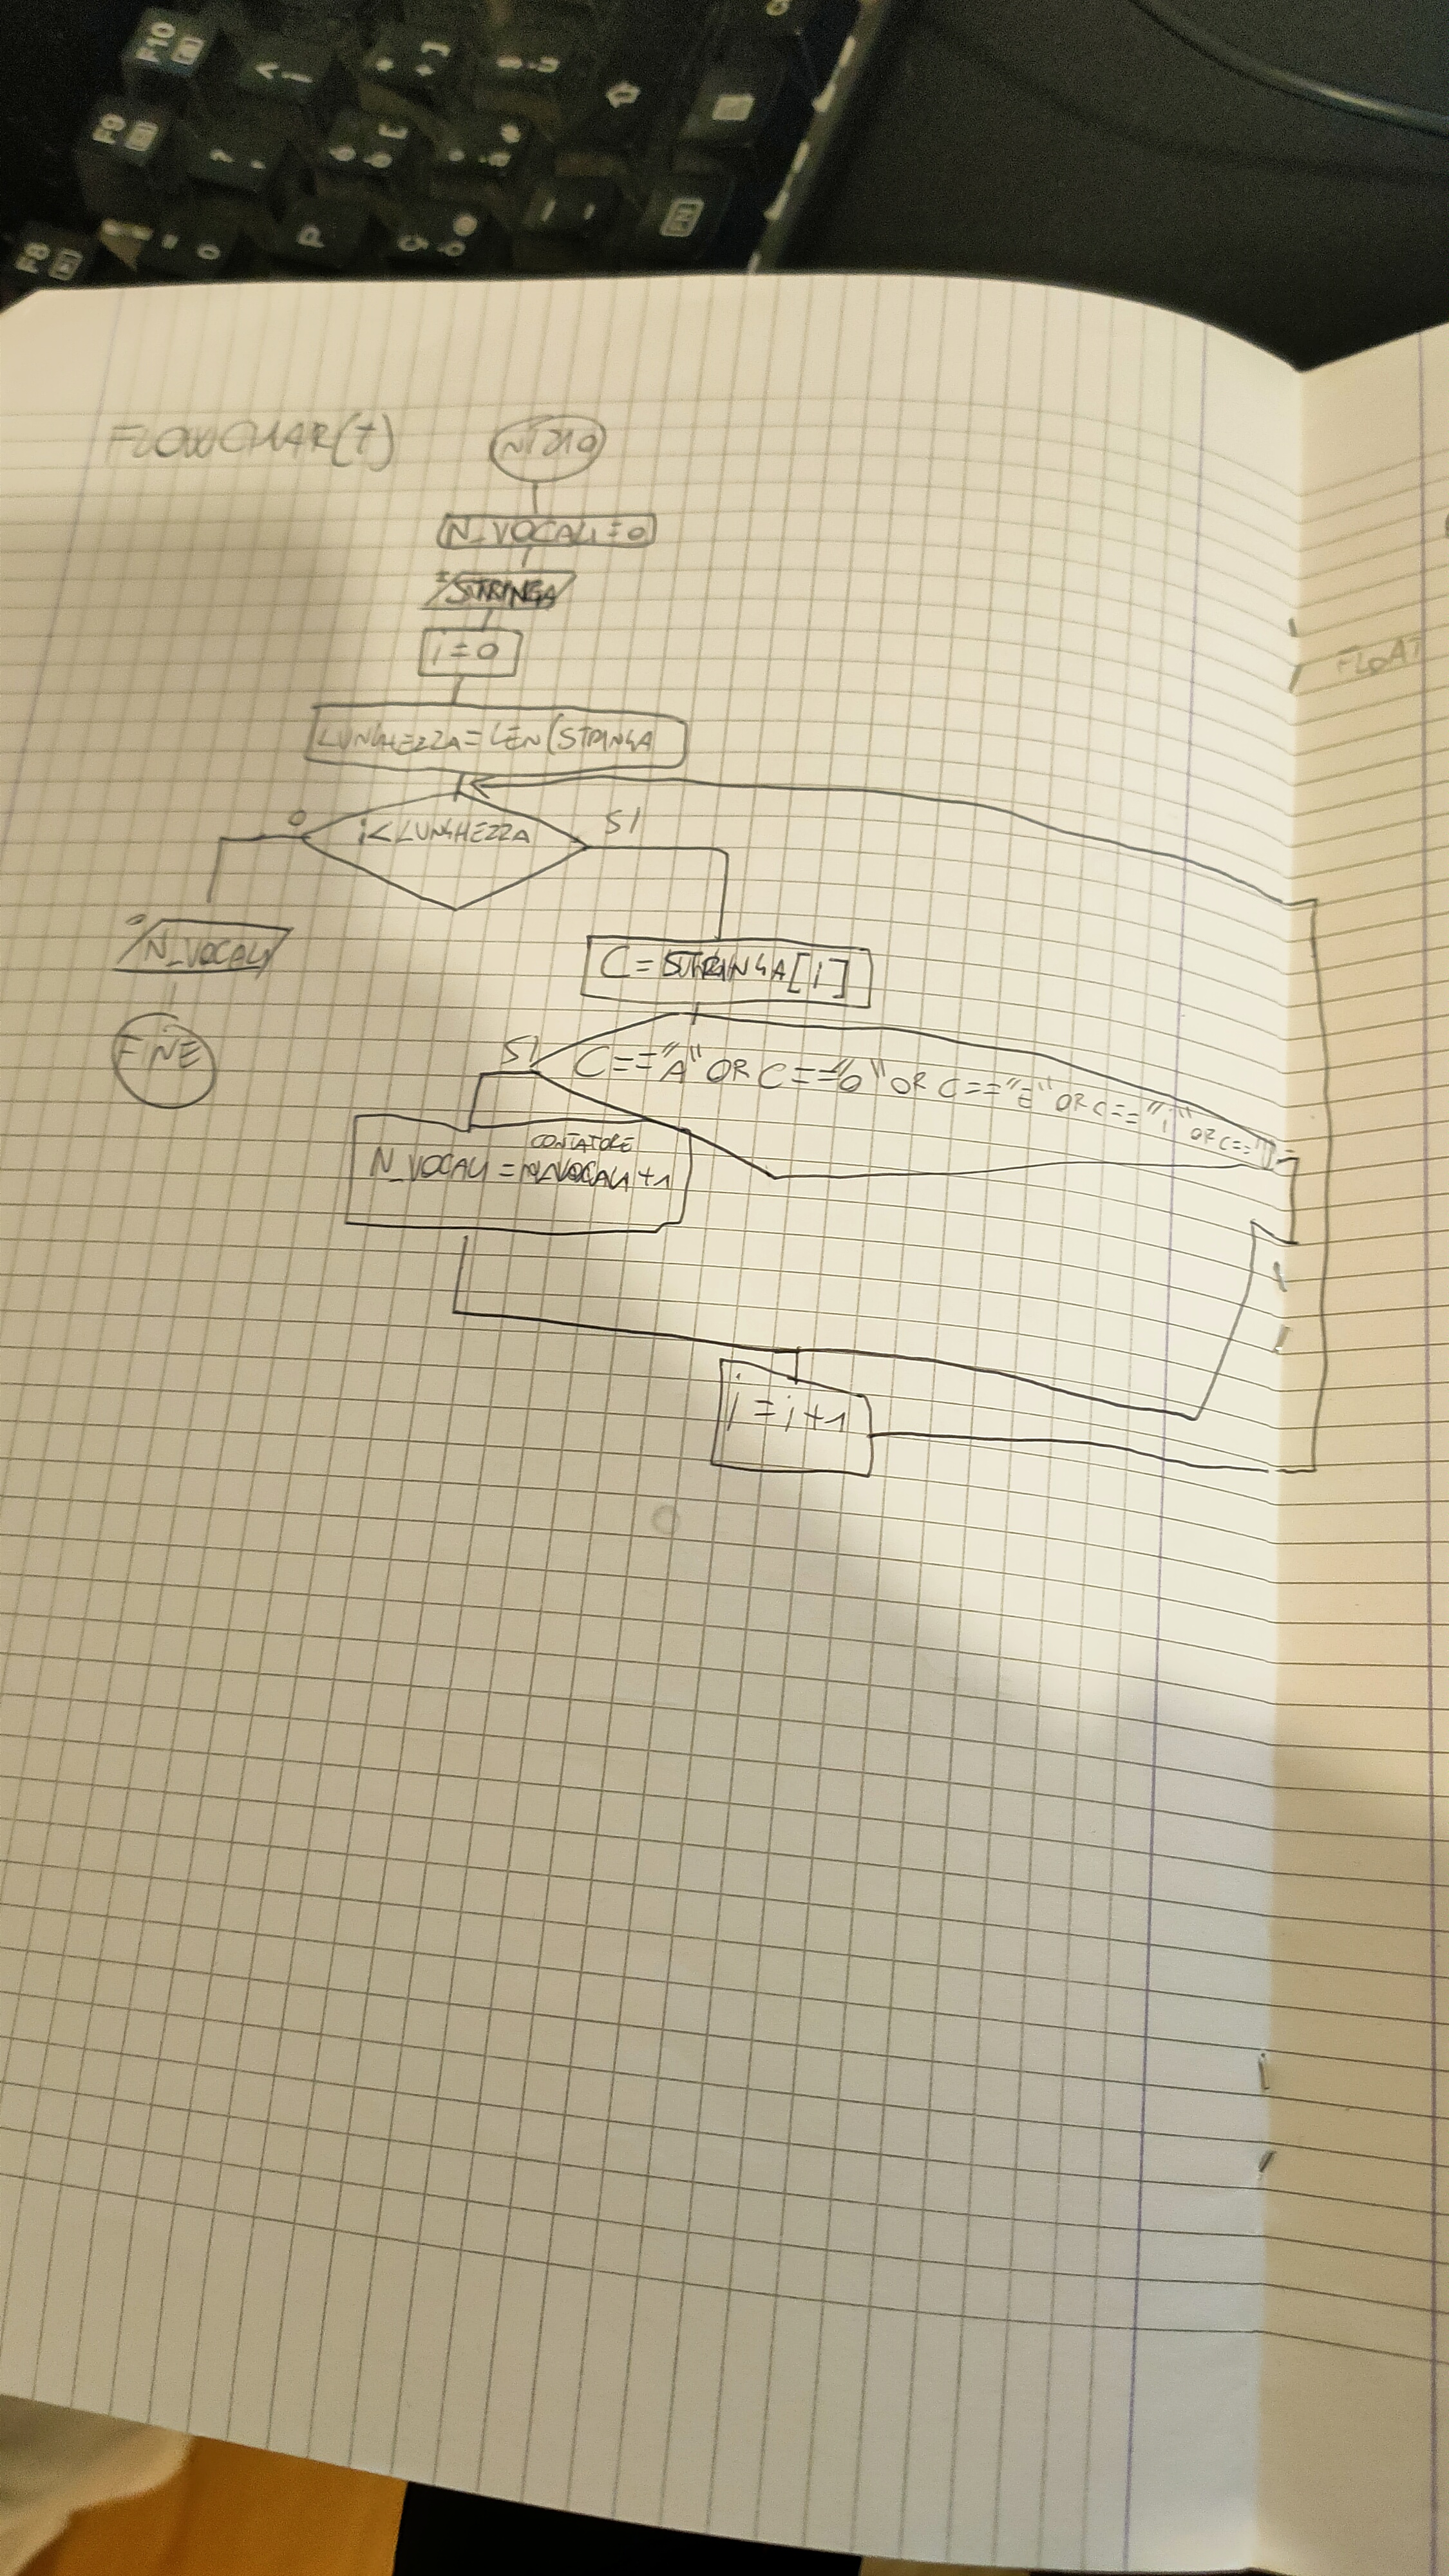 FLOWCHAR(T)
INIZIO
N_VOCALI=0
STRINGA
i=0
LUNGHEZZA=LEN(STRINGA
i<LUNGHEZZA
SI
N_VOCALI
FINE
C=STRINGA[i]
SI
C=="A" OR C=="O" OR C=="E" OR C=="i" OR C=="
CONTATORE
N_VOCALI=N_VOCALI+1
i=i+1
FLOAT
F10
F9
F8
P